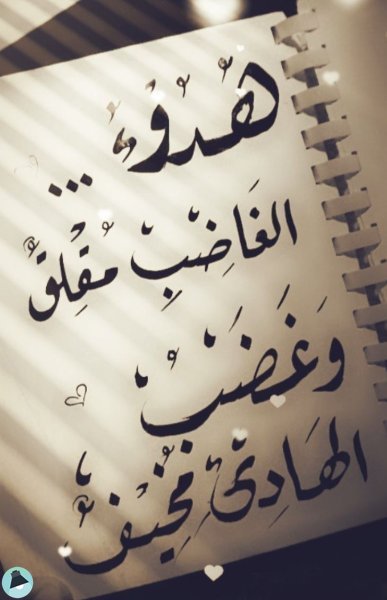 هُدُوْءُ ...
الغَاضِبِْ مُقْلِقٌ
وَغَضَبُْ
الهَادِئْ مُخِيْفٌ